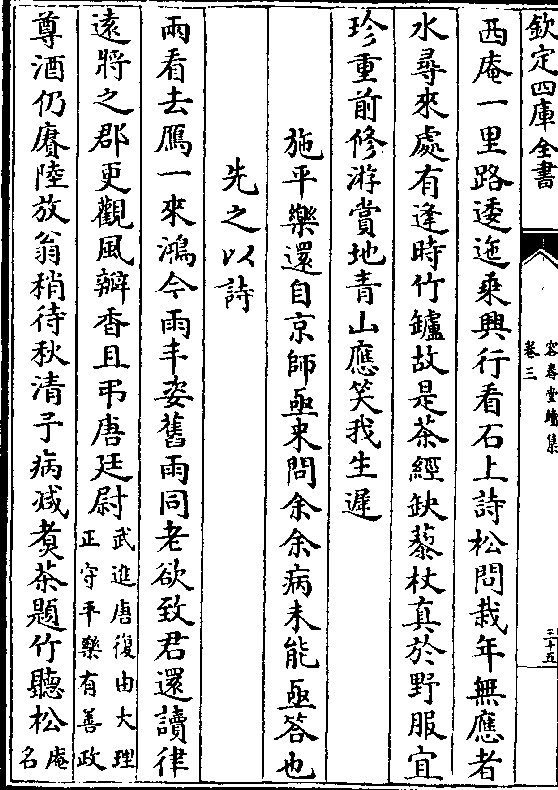 欽定四庫全書
容春堂續集
卷三
三十五
西庵一里路逶迤乘興行看石上詩松問栽年無應者
水尋來處有逢時竹鑪故是茶經缺藜杖真於野服宜
珍重前修游賞地青山應笑我生遲
施平樂還自京師亟來問余余病未能亟答也
先之以詩
兩看去鴈一來鴻今雨丰姿舊雨同老欲致君還讀律
遠將之郡更觀風瓣香且弔唐廷尉武進唐復由大理正守平樂有善政
尊酒仍賡陸放翁稍待秋清予病減煑茶題竹聽松庵名